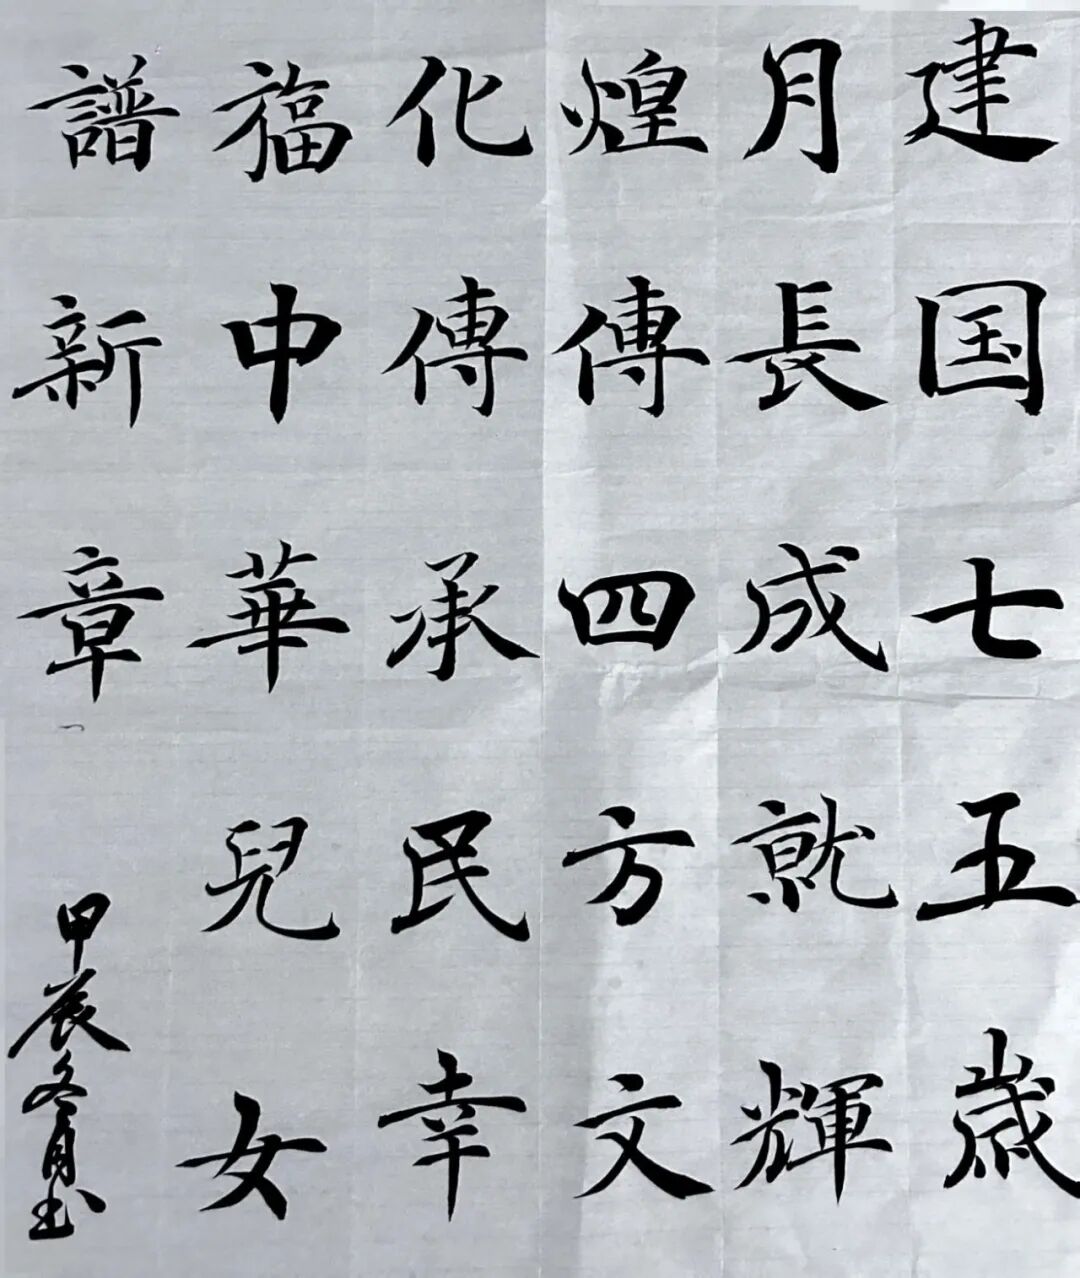 建国七五歲
月長成就輝
煌傳四方文
化傳承民幸
福中華兒女
譜新章
甲辰冬月书